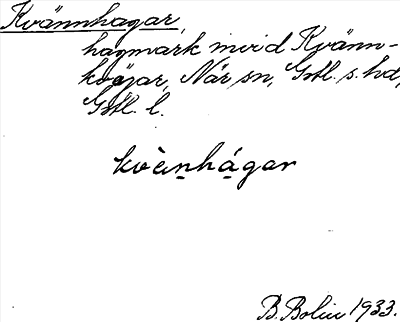 Kvännhagar,
hagmark invid Kvänn-
kväjar, När sn, Gtl. s. hd,
Gtl. l.
kvὲnhágar
B. Bolin 1933.